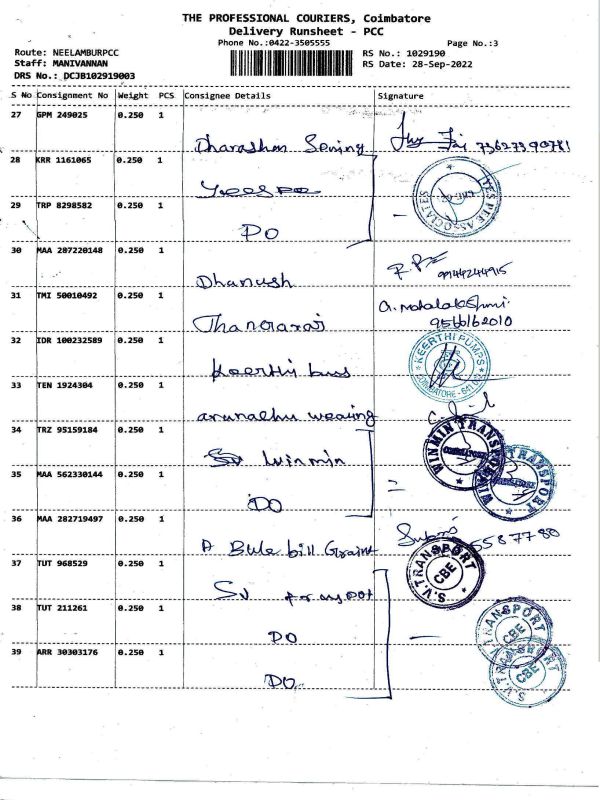 THE PROFESSIONAL COURIERS, Coimbatore
Delivery Runsheet - PCC
Phone No.:0422-3505555 Page No.:3
Route: NEELAMBURPCC RS No.: 1029190
Staff: MANIVANNAN RS Date: 28-Sep-2022
DRS No.: DCJB102919003
S No Consignment No Weight PCS Consignee Details Signature
27 GPM 249025 0.250 1
73627390781
28 KRR 1161065 0.250 1
YES PEE ASSOCIATES
29 TRP 8298582 0.250 1
DO
30 MAA 287220148 0.250 1
Dhanush 9944244915
31 TMI 50010492 0.250 1
a. mahalakshmi
9566162010
32 IDR 100232589 0.250 1
KEERTHI PUMPS
COIMBATORE
Keerthi
33 TEN 1924304 0.250 1
34 TRZ 95159184 0.250 1
WINMIN TRANSPORT
COIMBATORE
winmin
35 MAA 562330144 0.250 1
TRANSPORT
DO
36 MAA 282719497 0.250 1
A Bule bill
37 TUT 968529 0.250 1
S.V. TRANSPORT
CBE
SV
38 TUT 211261 0.250 1
DO
TRANSPORT
CBE
39 ARR 30303176 0.250 1
S.V. TRANSPORT
CBE
DO